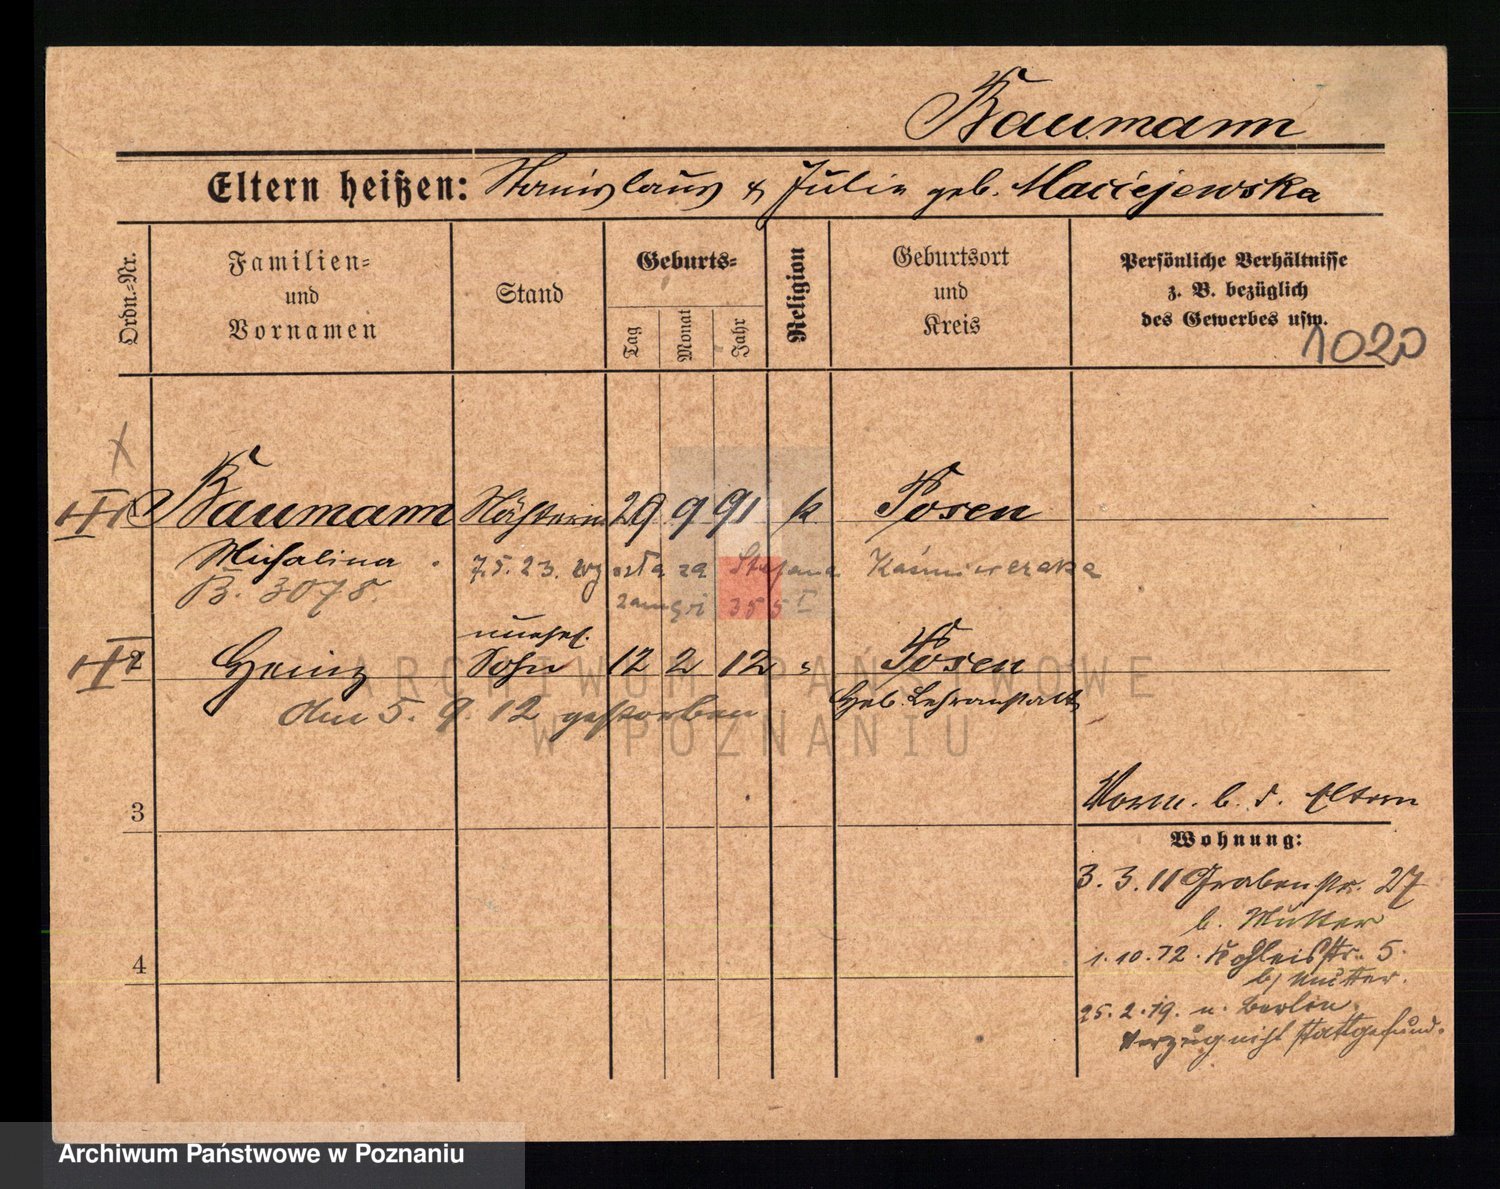 Baumann
Eltern heißen: Stanislaus & Julie geb. Maciejewska
Ordn.-Nr.
Familien- und Vornamen
Stand
Geburts-
Tag
Monat
Jahr
Religion
Geburtsort und Kreis
Persönliche Verhältnisse
z. B. bezüglich
des Gewerbes usw.
1020
Baumann Näherin 29 9 91 k Posen
Michalina 7.5.23. za Stefana Kaźmierczaka
B. 3078. zamęż 355
unehel.
2 Heinz Sohn 12 2 12 " Posen
Heb. Lehranstalt
den 5. 9. 12 gestorben
3
4
Vorm. b. d. Eltern
Wohnung:
3. 3. 11 Grabenstr. 27
b. Mutter
1. 10. 12. 5.
b/ Mutter.
25. 2. 19. n. Berlin
Verzug nicht stattgefund.
ARCHIWUM PAŃSTWOWE
W POZNANIU
Archiwum Państwowe w Poznaniu